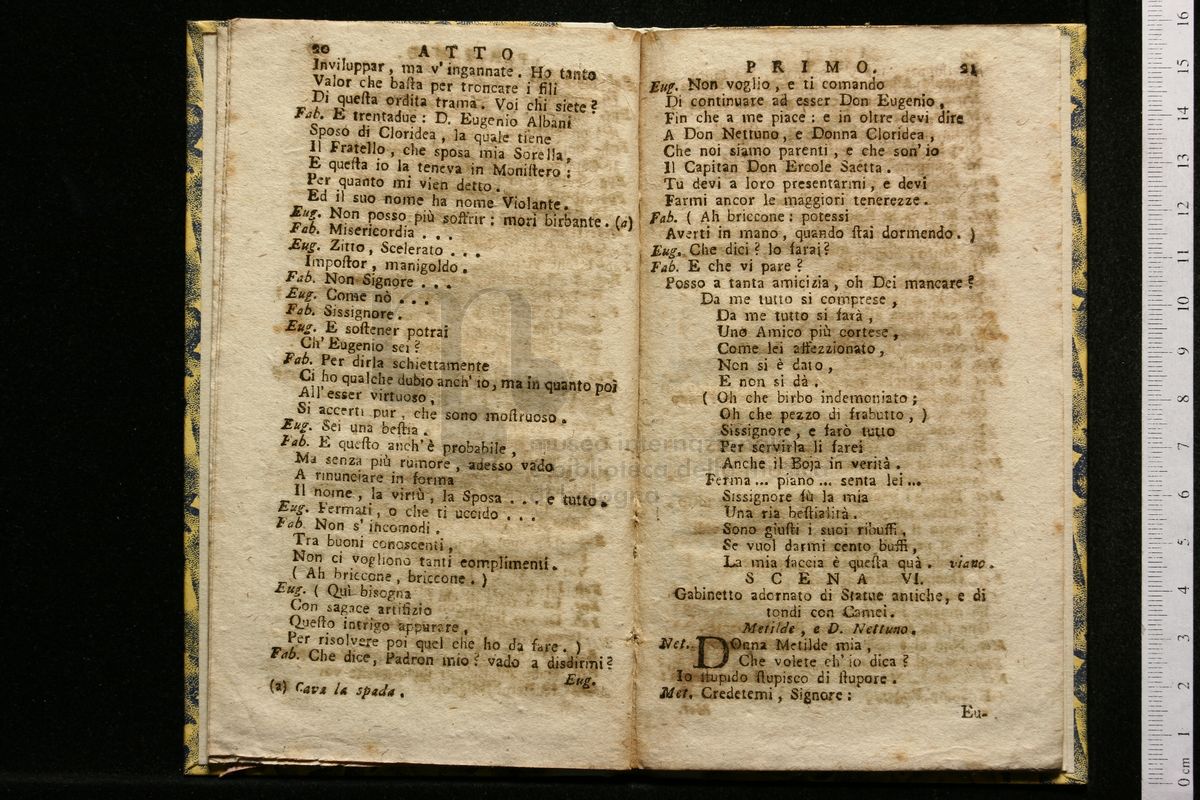 20 ATTO
Inviluppar, ma v'ingannate. Ho tanto
Valor che baſta per troncare i fili
Di queſta ordita trama. Voi chi siete?
Fab. E trentadue: D. Eugenio Albani
Sposo di Cloridea, la quale tiene
Il Fratello, che sposa mia Sorella,
E queſta io la teneva in Moniſtero:
Per quanto mi vien detto.
Ed il suo nome ha nome Violante.
Eug. Non posso più soffrir: mori birbante. (a)
Fab. Misericordia . . .
Eug. Zitto, Scelerato . . .
Impoſtor, manigoldo.
Fab. Non Signore . . .
Eug. Come nò . . .
Fab. Sissignore.
Eug. E soſtener potrai
Ch' Eugenio sei?
Fab. Per dirla schiettamente
Ci ho qualche dubio anch' io, ma in quanto poi
All' esser virtuoso,
Si accerti pur, che sono moſtruoso.
Eug. Sei una beſtia.
Fab. E queſto anch' è probabile,
Ma senza più rumore, adesso vado
A rinunciare in forma
Il nome, la virtù, la Sposa . . . e tutto.
Eug. Fermati, o che ti uccido . . .
Fab. Non s' incomodi.
Tra buoni conoscenti,
Non ci vogliono tanti complimenti.
( Ah briccone, briccone. )
Eug. ( Quì bisogna
Con sagace artifizio
Queſto intrigo appurare,
Per risolvere poi quel che ho da fare. )
Fab. Che dice, Padron mio? vado a disdirmi?
Eug.
(a) Cava la spada.
PRIMO. 21
Eug. Non voglio, e ti comando
Di continuare ad esser Don Eugenio,
Fin che a me piace: e in oltre devi dire
A Don Nettuno, e Donna Cloridea,
Che noi siamo parenti, e che son' io
Il Capitan Don Ercole Saetta.
Tu devi a loro presentarmi, e devi
Farmi ancor le maggiori tenerezze.
Fab. ( Ah briccone: potessi
Averti in mano, quando ſtai dormendo. )
Eug. Che dici? lo farai?
Fab. E che vi pare?
Posso a tanta amicizia, oh Dei mancare?
Da me tutto si comprese,
Da me tutto si farà,
Uno Amico più cortese,
Come lei affezzionato,
Non si è dato,
E non si dà.
( Oh che birbo indemoniato;
Oh che pezzo di frabutto, )
Sissignore, e farò tutto
Per servirla li farei
Anche il Boja in verità.
Ferma ... piano ... senta lei ...
Sissignore fù la mia
Una ria beſtialità.
Sono giuſti i suoi ribuffi,
Se vuol darmi cento buffi,
La mia faccia è queſta quà. viano.
SCENA VI.
Gabinetto adornato di Statue antiche, e di
tondi con Camei.
Metilde, e D. Nettuno.
Net. DOnna Metilde mia,
Che volete ch' io dica?
Io ſtupido ſtupisco di ſtupore.
Met. Credetemi, Signore:
Eu-
museo internaz
biblioteca del
0 cm 1 2 3 4 5 6 7 8 9 10 11 12 13 14 15 16